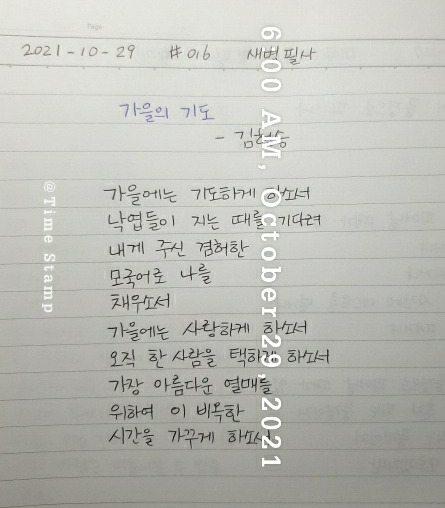 Page
2021-10-29 #016 새벽 필사
가을의 기도
- 김현승
가을에는 기도하게 하소서
낙엽들이 지는 때를 기다려
내게 주신 겸허한
모국어로 나를
채우소서
가을에는 사랑하게 하소서
오직 한 사람을 택하게 하소서
가장 아름다운 열매를
위하여 이 비옥한
시간을 가꾸게 하소서
@Time Stamp
6:00 AM, October 29, 2021